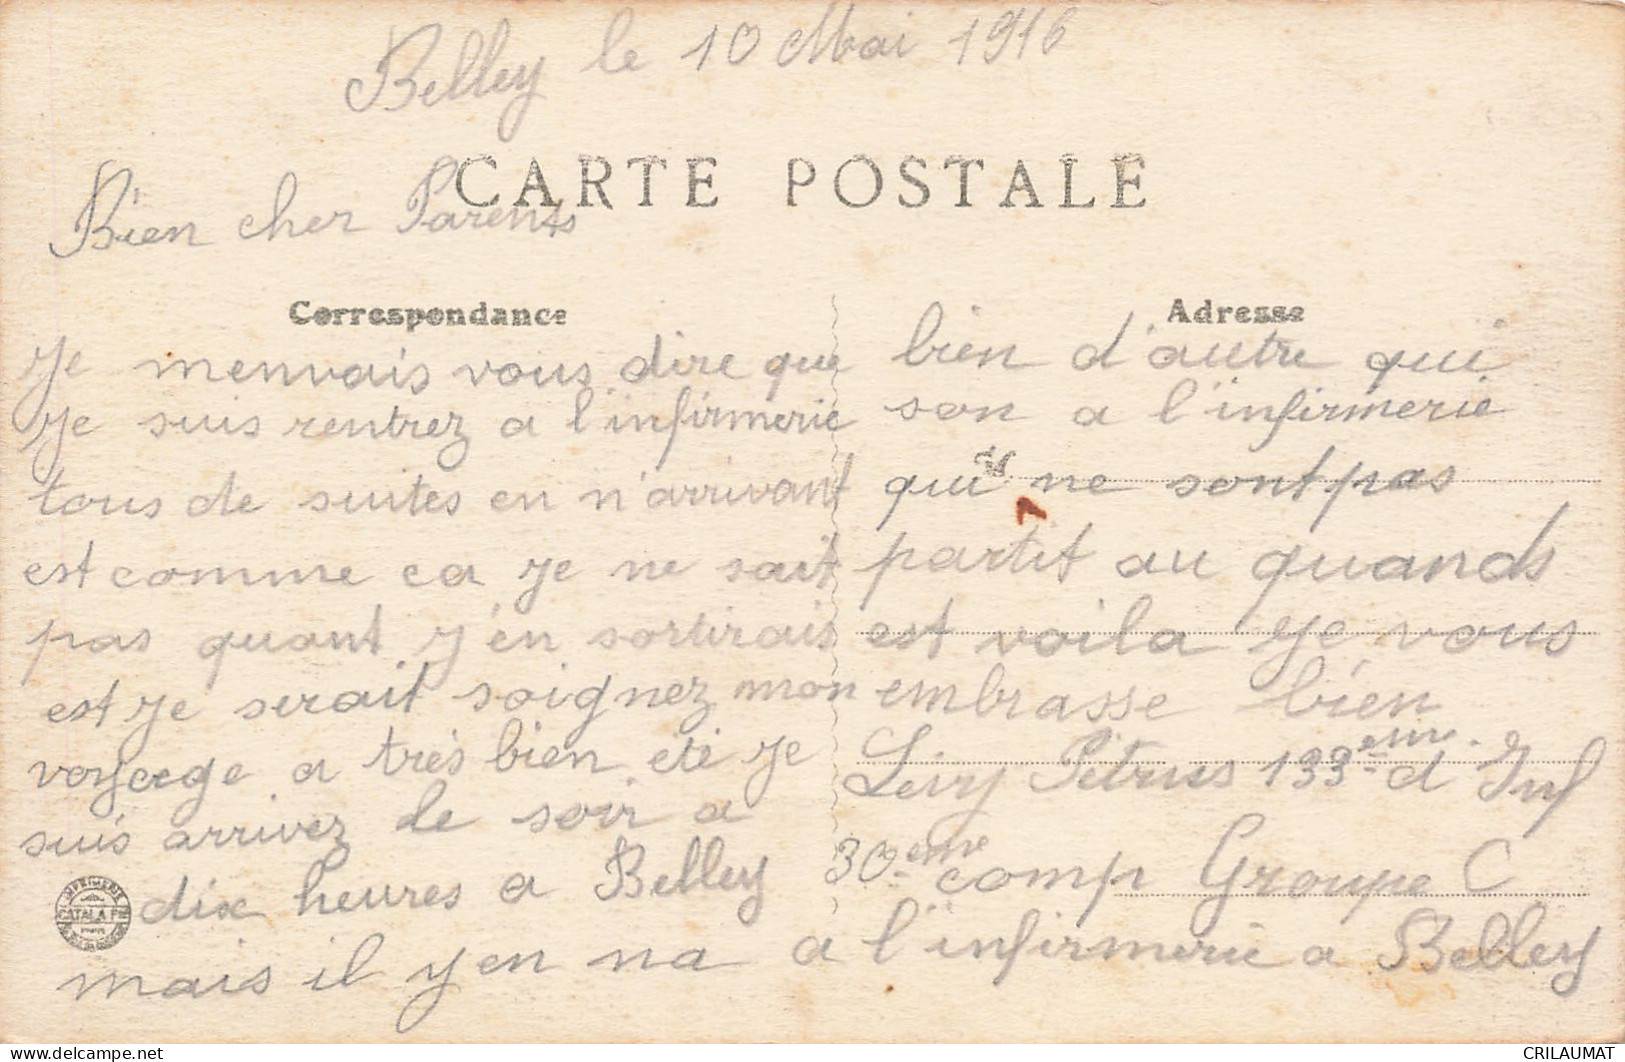 Belley le 10 Mai 1916
CARTE POSTALE
Bien cher Parents
Correspondance
Je menvais vous dire que
Je suis rentrez a l'infirmerie
tous de suites en n'arrivant
est comme ca je ne sait
pas quant j'en sortirais
est je serait soignez mon
voyage a très bien eté je
suis arrivez le soir a
dix heures a Belley
mais il y en na
Adresse
bien d'autre qui
son a l'infirmerie
qui ne sont pas
partit au quands
est voila je vous
embrasse bien
Levy Pétrus 133eme d Inf
30eme comp Groupe C
a l'infirmerie a Belley
IMPRIMERIE
CATALA Fres
PARIS
CRILAUMAT